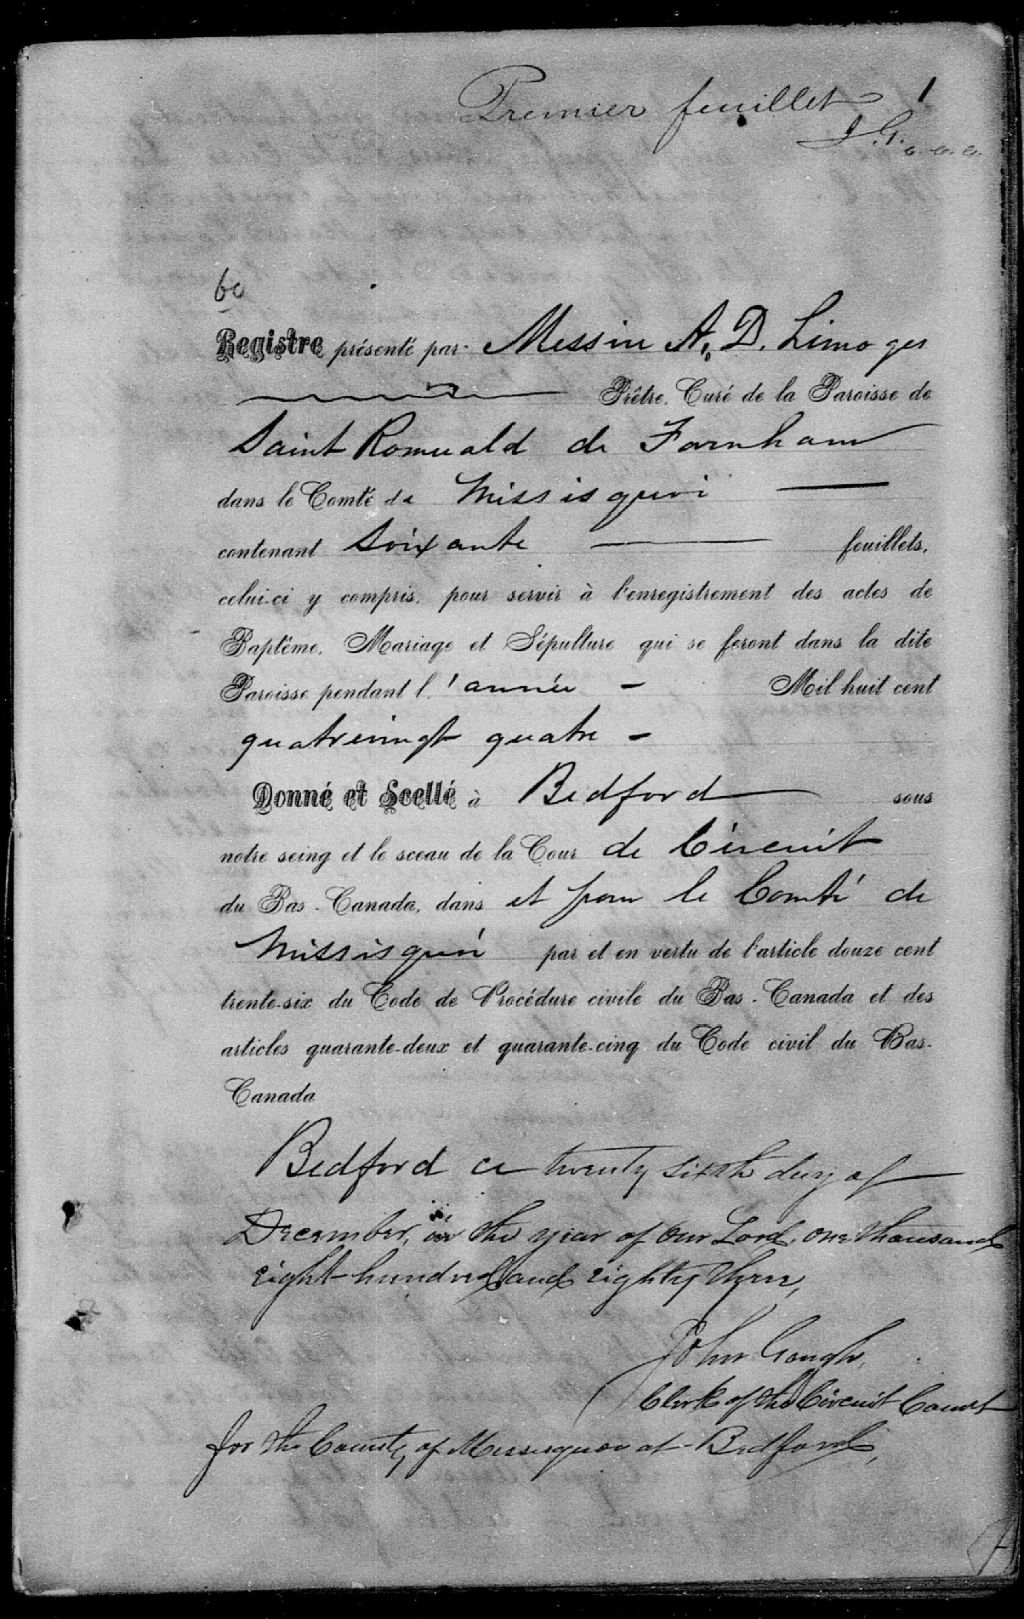 Premier feuillet 1
J. G. c.c.c.
60
Registre présenté par Messire A. D. Limoges
Prêtre, Curé de la Paroisse de
Saint Romuald de Farnham
dans le Comté de Missisquoi
contenant Soixante feuillets,
celui-ci y compris, pour servir à l'enregistrement des actes de
Baptême, Mariage et Sépulture qui se feront dans la dite
Paroisse pendant l'année Mil huit cent
quatrevingt quatre
Donné et Scellé à Bedford sous
notre seing et le sceau de la Cour de Circuit
du Bas-Canada, dans et pour le Comté de
Missisquoi par et en vertu de l'article douze cent
trente-six du Code de Procédure civile du Bas-Canada et des
articles quarante-deux et quarante-cinq du Code civil du Bas-
Canada
Bedford ce twenty sixth day of
December, in the year of Our Lord, one thousand
eight hundred and eighty three,
John Gough,
Clerk of the Circuit Court
for the County of Missisquoi at Bedford,